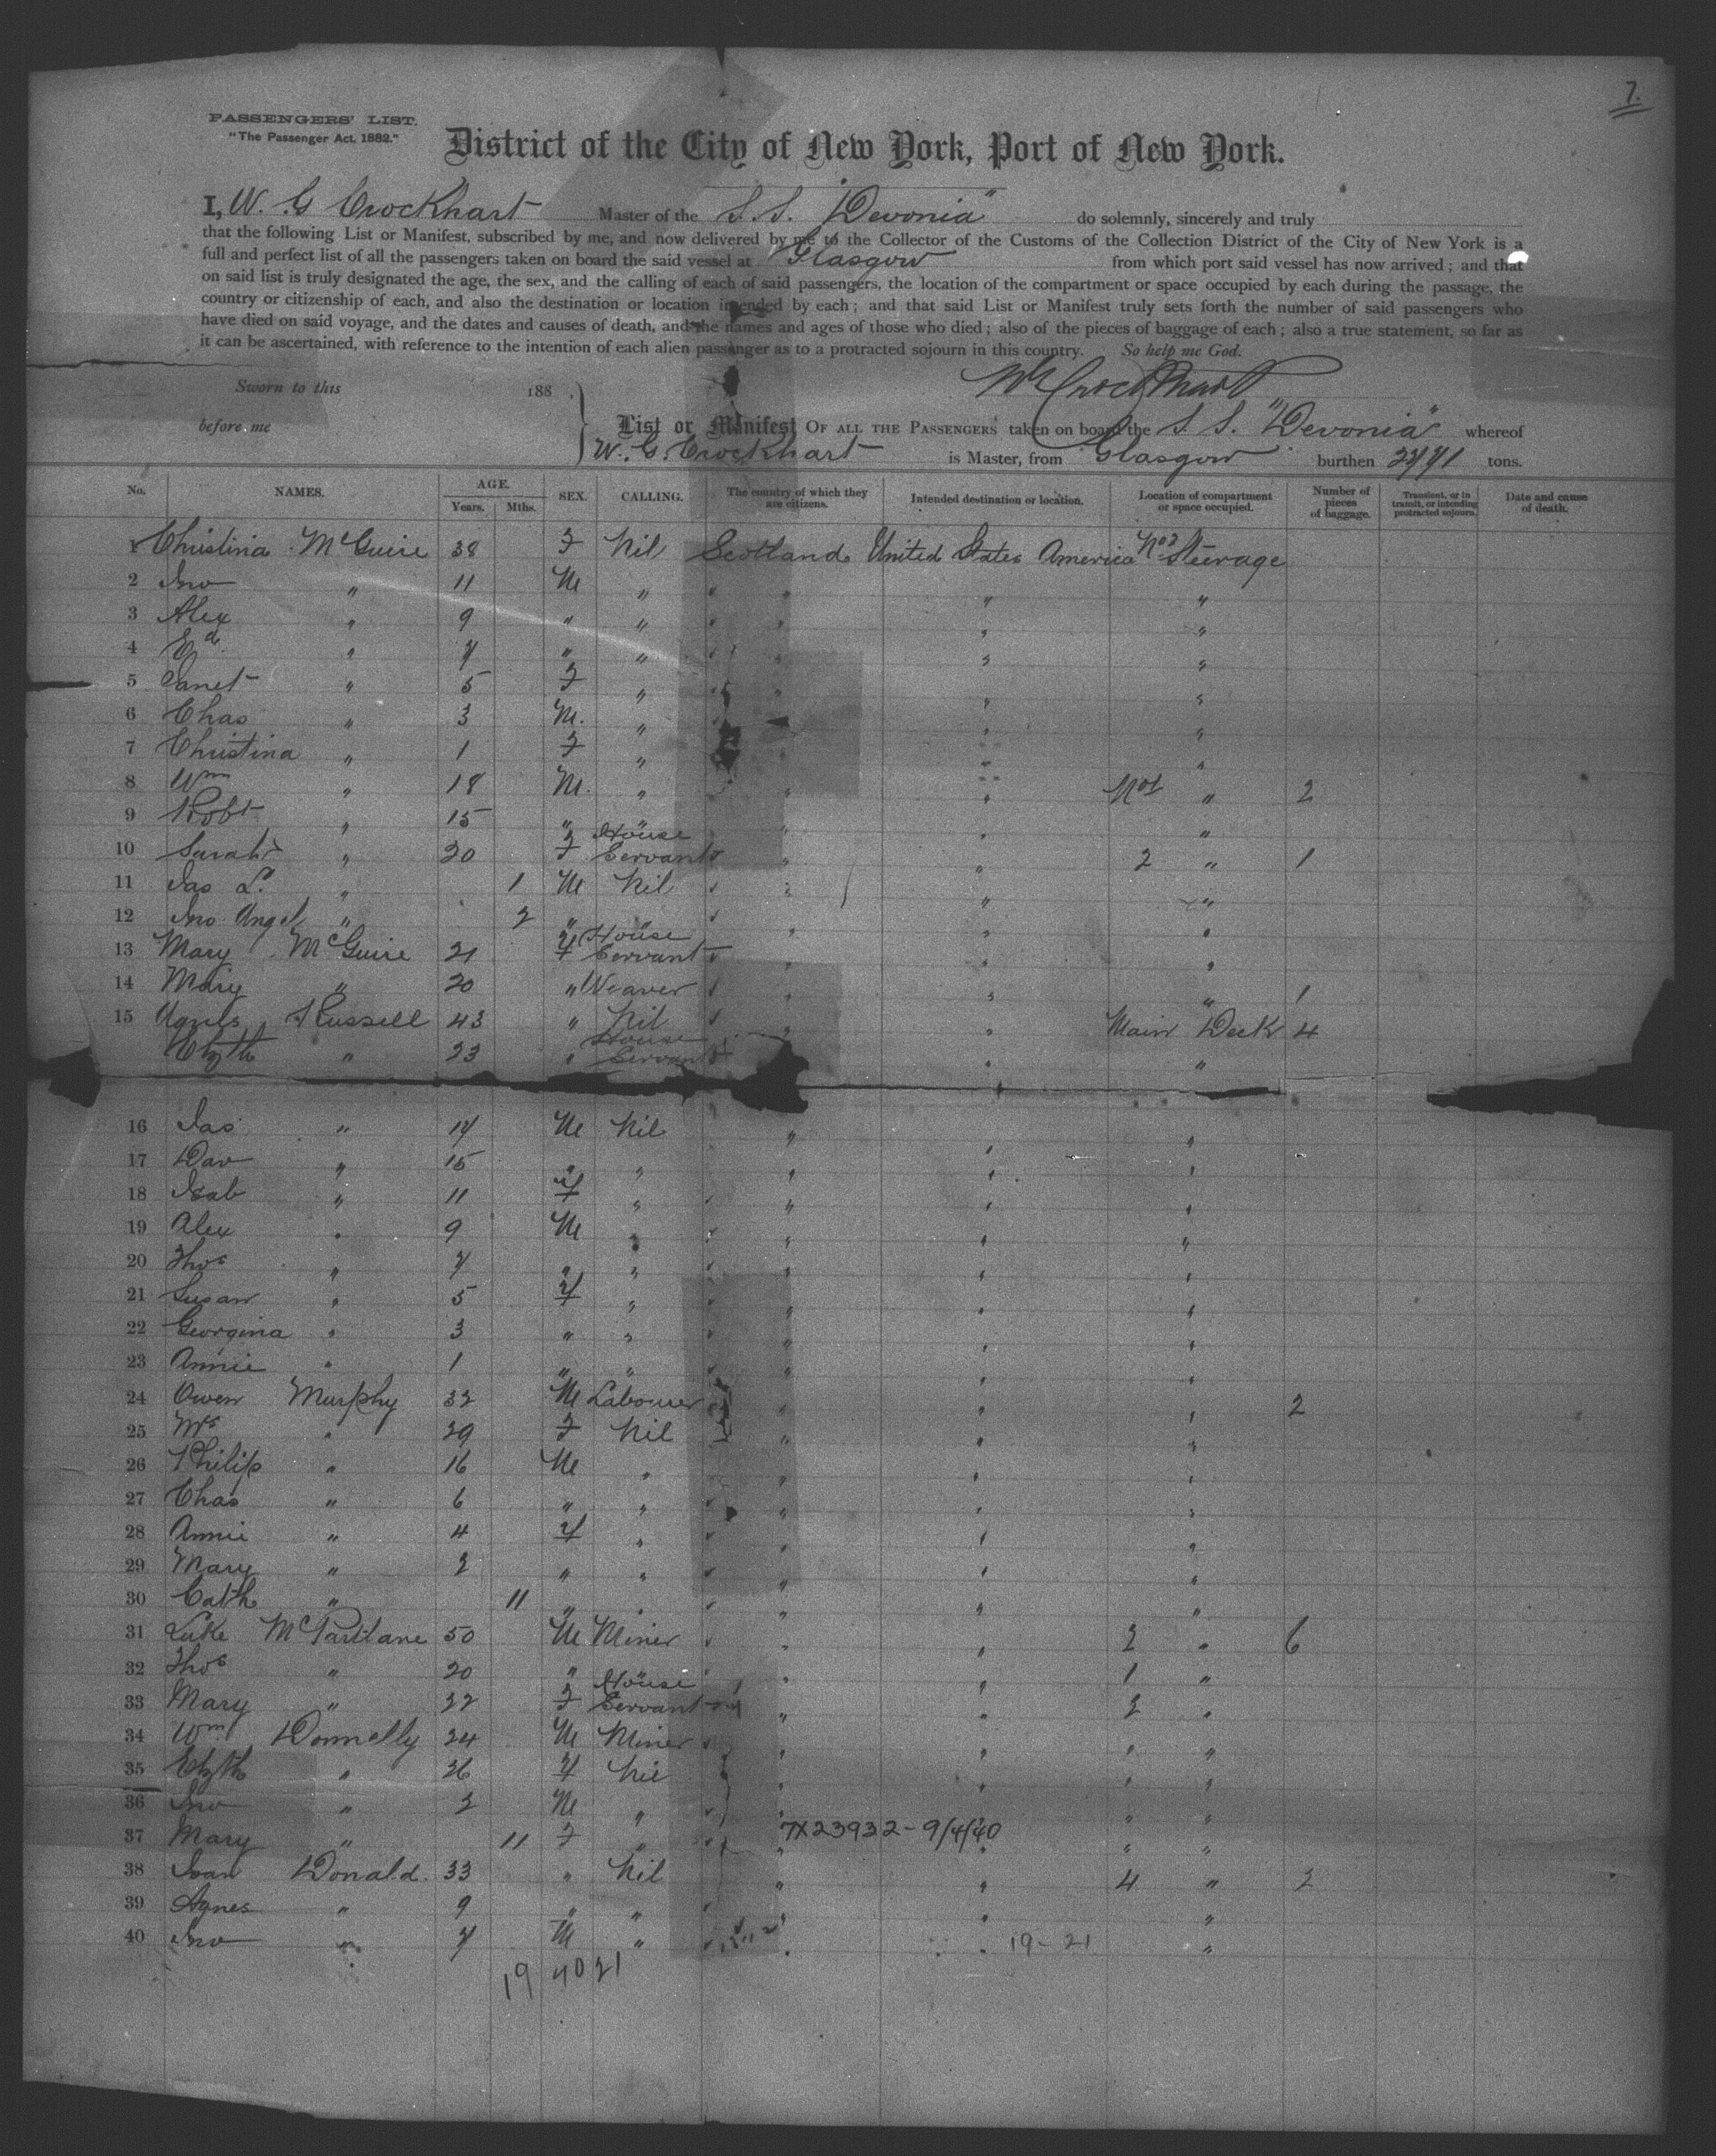 7.
PASSENGERS' LIST.
"The Passenger Act, 1882."
District of the City of New York, Port of New York.
I, W. G Crockhart Master of the S.S. "Devonia" do solemnly, sincerely and truly
that the following List or Manifest, subscribed by me, and now delivered by me to the Collector of the Customs of the Collection District of the City of New York is a
full and perfect list of all the passengers taken on board the said vessel at Glasgow from which port said vessel has now arrived; and that
on said list is truly designated the age, the sex, and the calling of each of said passengers, the location of the compartment or space occupied by each during the passage, the
country or citizenship of each, and also the destination or location intended by each; and that said List or Manifest truly sets forth the number of said passengers who
have died on said voyage, and the dates and causes of death, and the names and ages of those who died; also of the pieces of baggage of each; also a true statement, so far as
it can be ascertained, with reference to the intention of each alien passenger as to a protracted sojourn in this country. So help me God.
Sworn to this 188 .
W G Crockhart
before me
List or Manifest OF ALL THE PASSENGERS taken on board the S. S. "Devonia" whereof
W. G. Crockhart is Master, from Glasgow burthen tons.
No. NAMES. AGE. Years. Mths. SEX. CALLING. The country of which they are citizens. Intended destination or location. Location of compartment or space occupied. Number of pieces of baggage. Transient, or in transit, or intending protracted sojourn. Date and cause of death.
1 Christina McGuire 38 F Nil Scotland United States America No 2 Steerage
2 Jno " 11 M " " " "
3 Alex " 9 " " " " "
4 Ed " 7 " " " " "
5 Janet " 5 F " " " "
6 Chas " 3 M. " " " "
7 Christina " 1 F " " " "
8 Wm " 18 M. " " " No 1 " 2
9 Robt " 15 " " " " "
10 Sarah " 20 F House Servant " " 2 " 1
11 Jas L. " 1 M Nil " " "
12 Jno Angel " 2 " " " "
13 Mary McGuire 21 F House Servant " " "
14 Mary " 20 " Weaver " " " 1
15 Agnes Russell 43 " Nil " " Main Deck 4
Elzth " 23 " House Servant " " "
16 Jas " 17 M Nil " " "
17 Dav " 15 " " " " "
18 Isab " 11 F " " " "
19 Alex " 9 M " " " "
20 Thos " 7 " " " " "
21 Susan " 5 F " " " "
22 Georgina " 3 " " " " "
23 Annie " 1 " " " " "
24 Owen Murphy 32 M Labourer " " " 2
25 Mrs " 29 F Nil " " "
26 Philip " 16 M " " " "
27 Chas " 6 " " " " "
28 Annie " 4 F " " " "
29 Mary " 2 " " " " "
30 Cath " 11 " " " " "
31 Luke McPartlane 50 M Miner " " 2 " 6
32 Thos " 20 " " " " 1 "
33 Mary " 22 F House Servant " " 2 "
34 Wm Donnelly 24 M Miner " " " "
35 Elzth " 26 F Nil " " " "
36 Jno " 2 M " " " "
7X23932 - 9/4/40
37 Mary " 11 F " " " " "
38 Jean Donald. 33 " Nil " " 4 " 2
39 Agnes " 9 " " " " "
40 Jno " 7 M " " " "
19 - 21
19 40 21